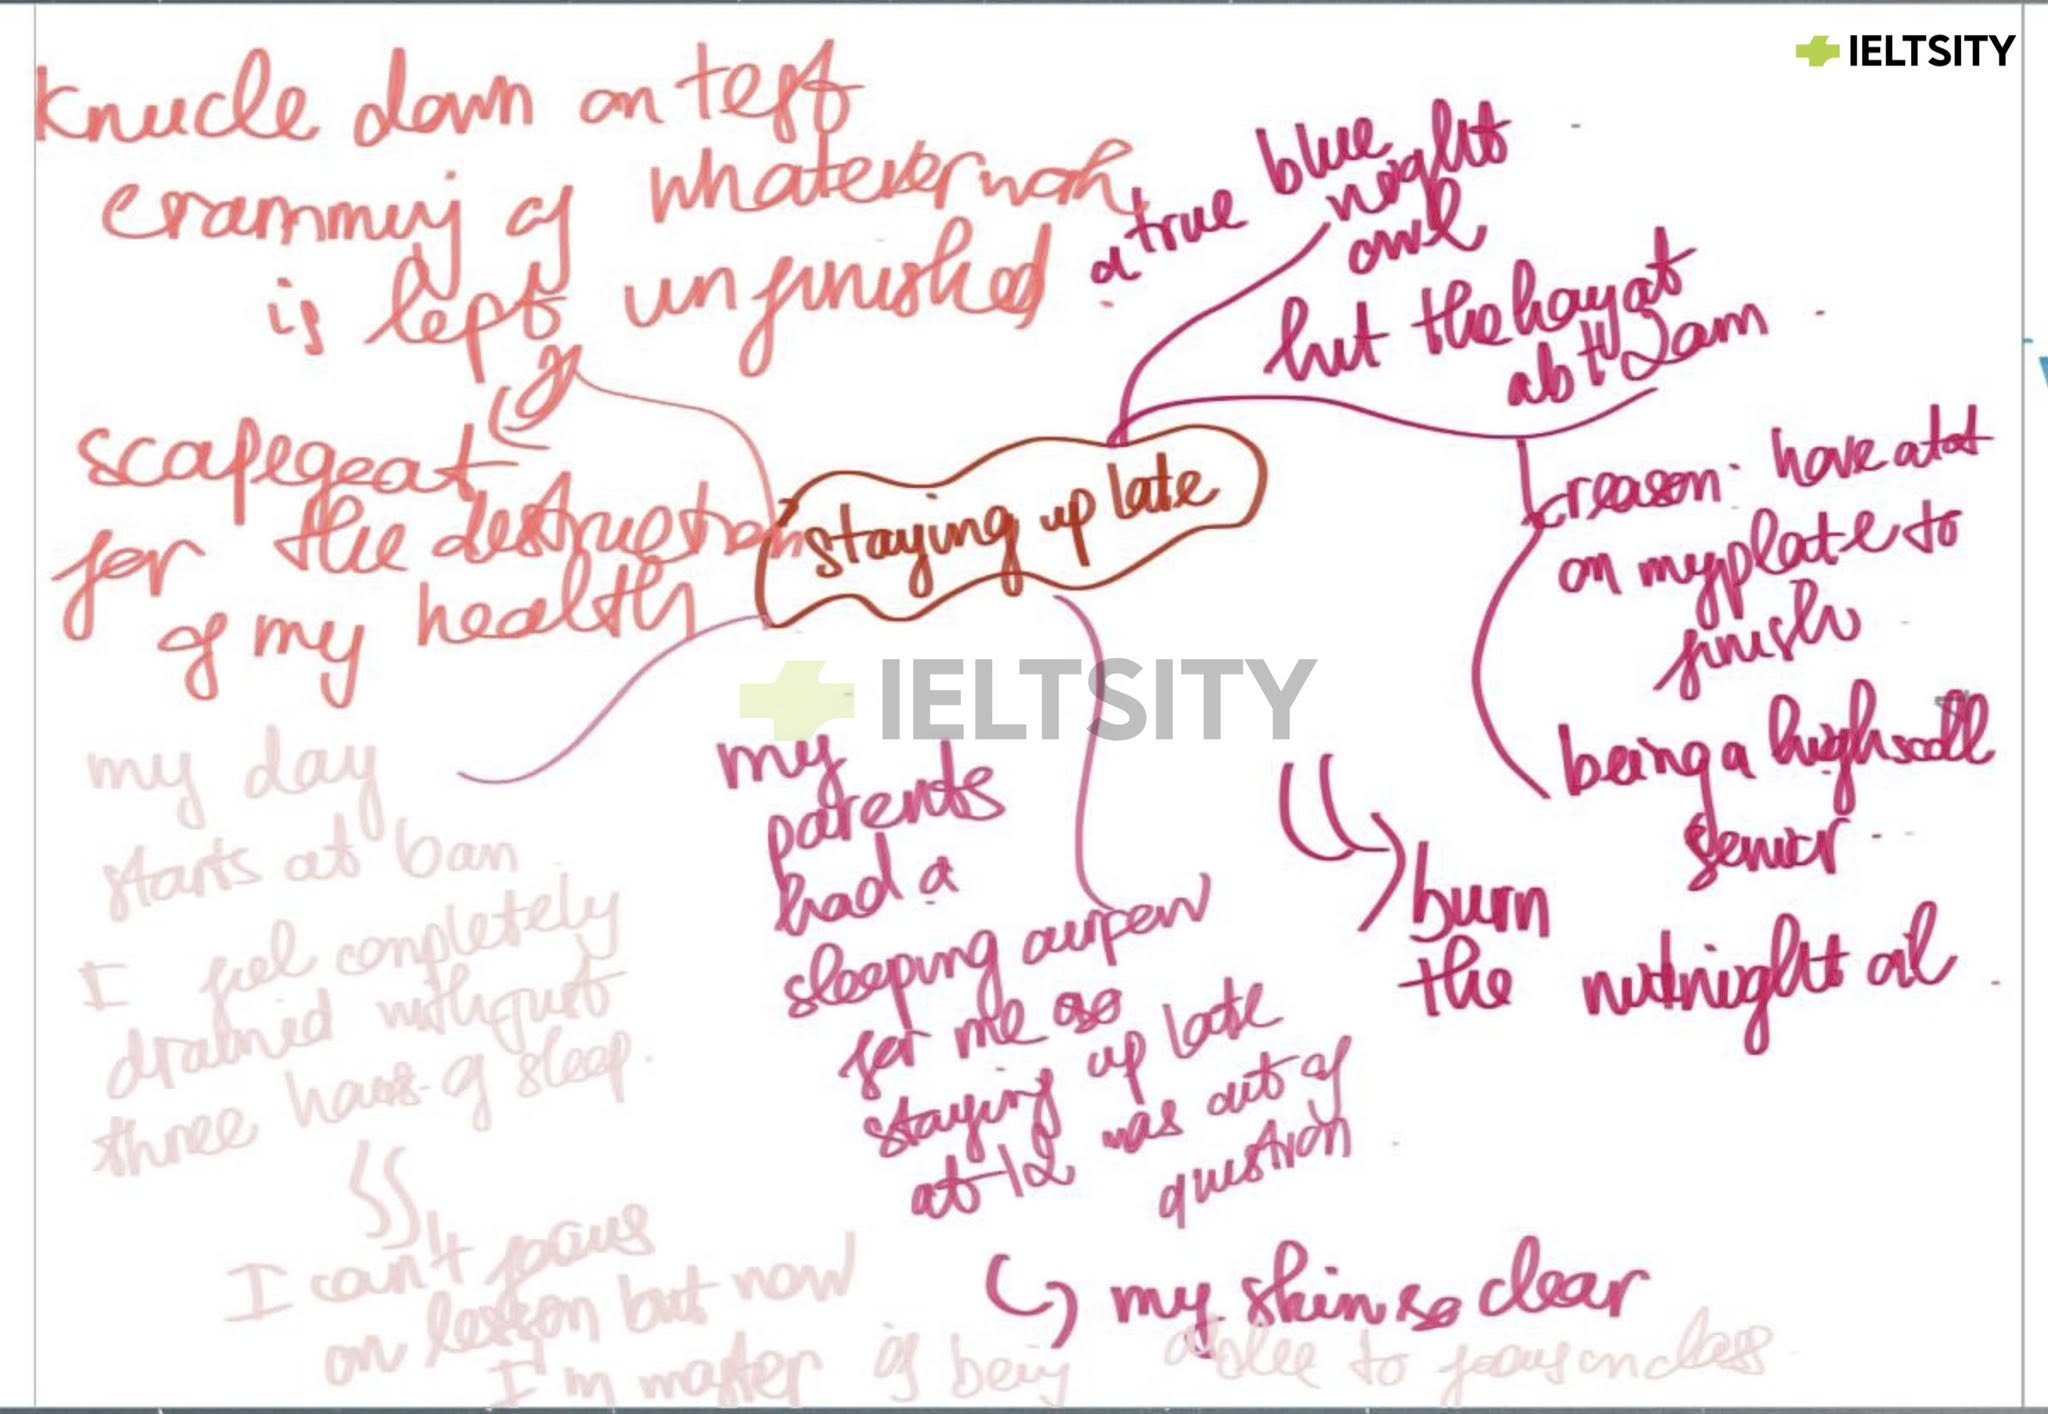 IELTSITY
knucle down on test
cramming of whatever work
is left unfinished
scapegeat
for the destruction
of my health
a true blue
night
owl
hit the hay at
abt 2am
staying up late
reason: have a lot
on my plate to
finish
being a high
senior
burn
the midnight oil
IELTSITY
my day
starts at 6am
I feel completely
drained with just
three hours of sleep.
I can't focus
on lesson but now
I'm master of being
able to focus on class
my
parents
had a
sleeping curfew
for me so
staying up late
at 12 was out of
question
my skin so clear